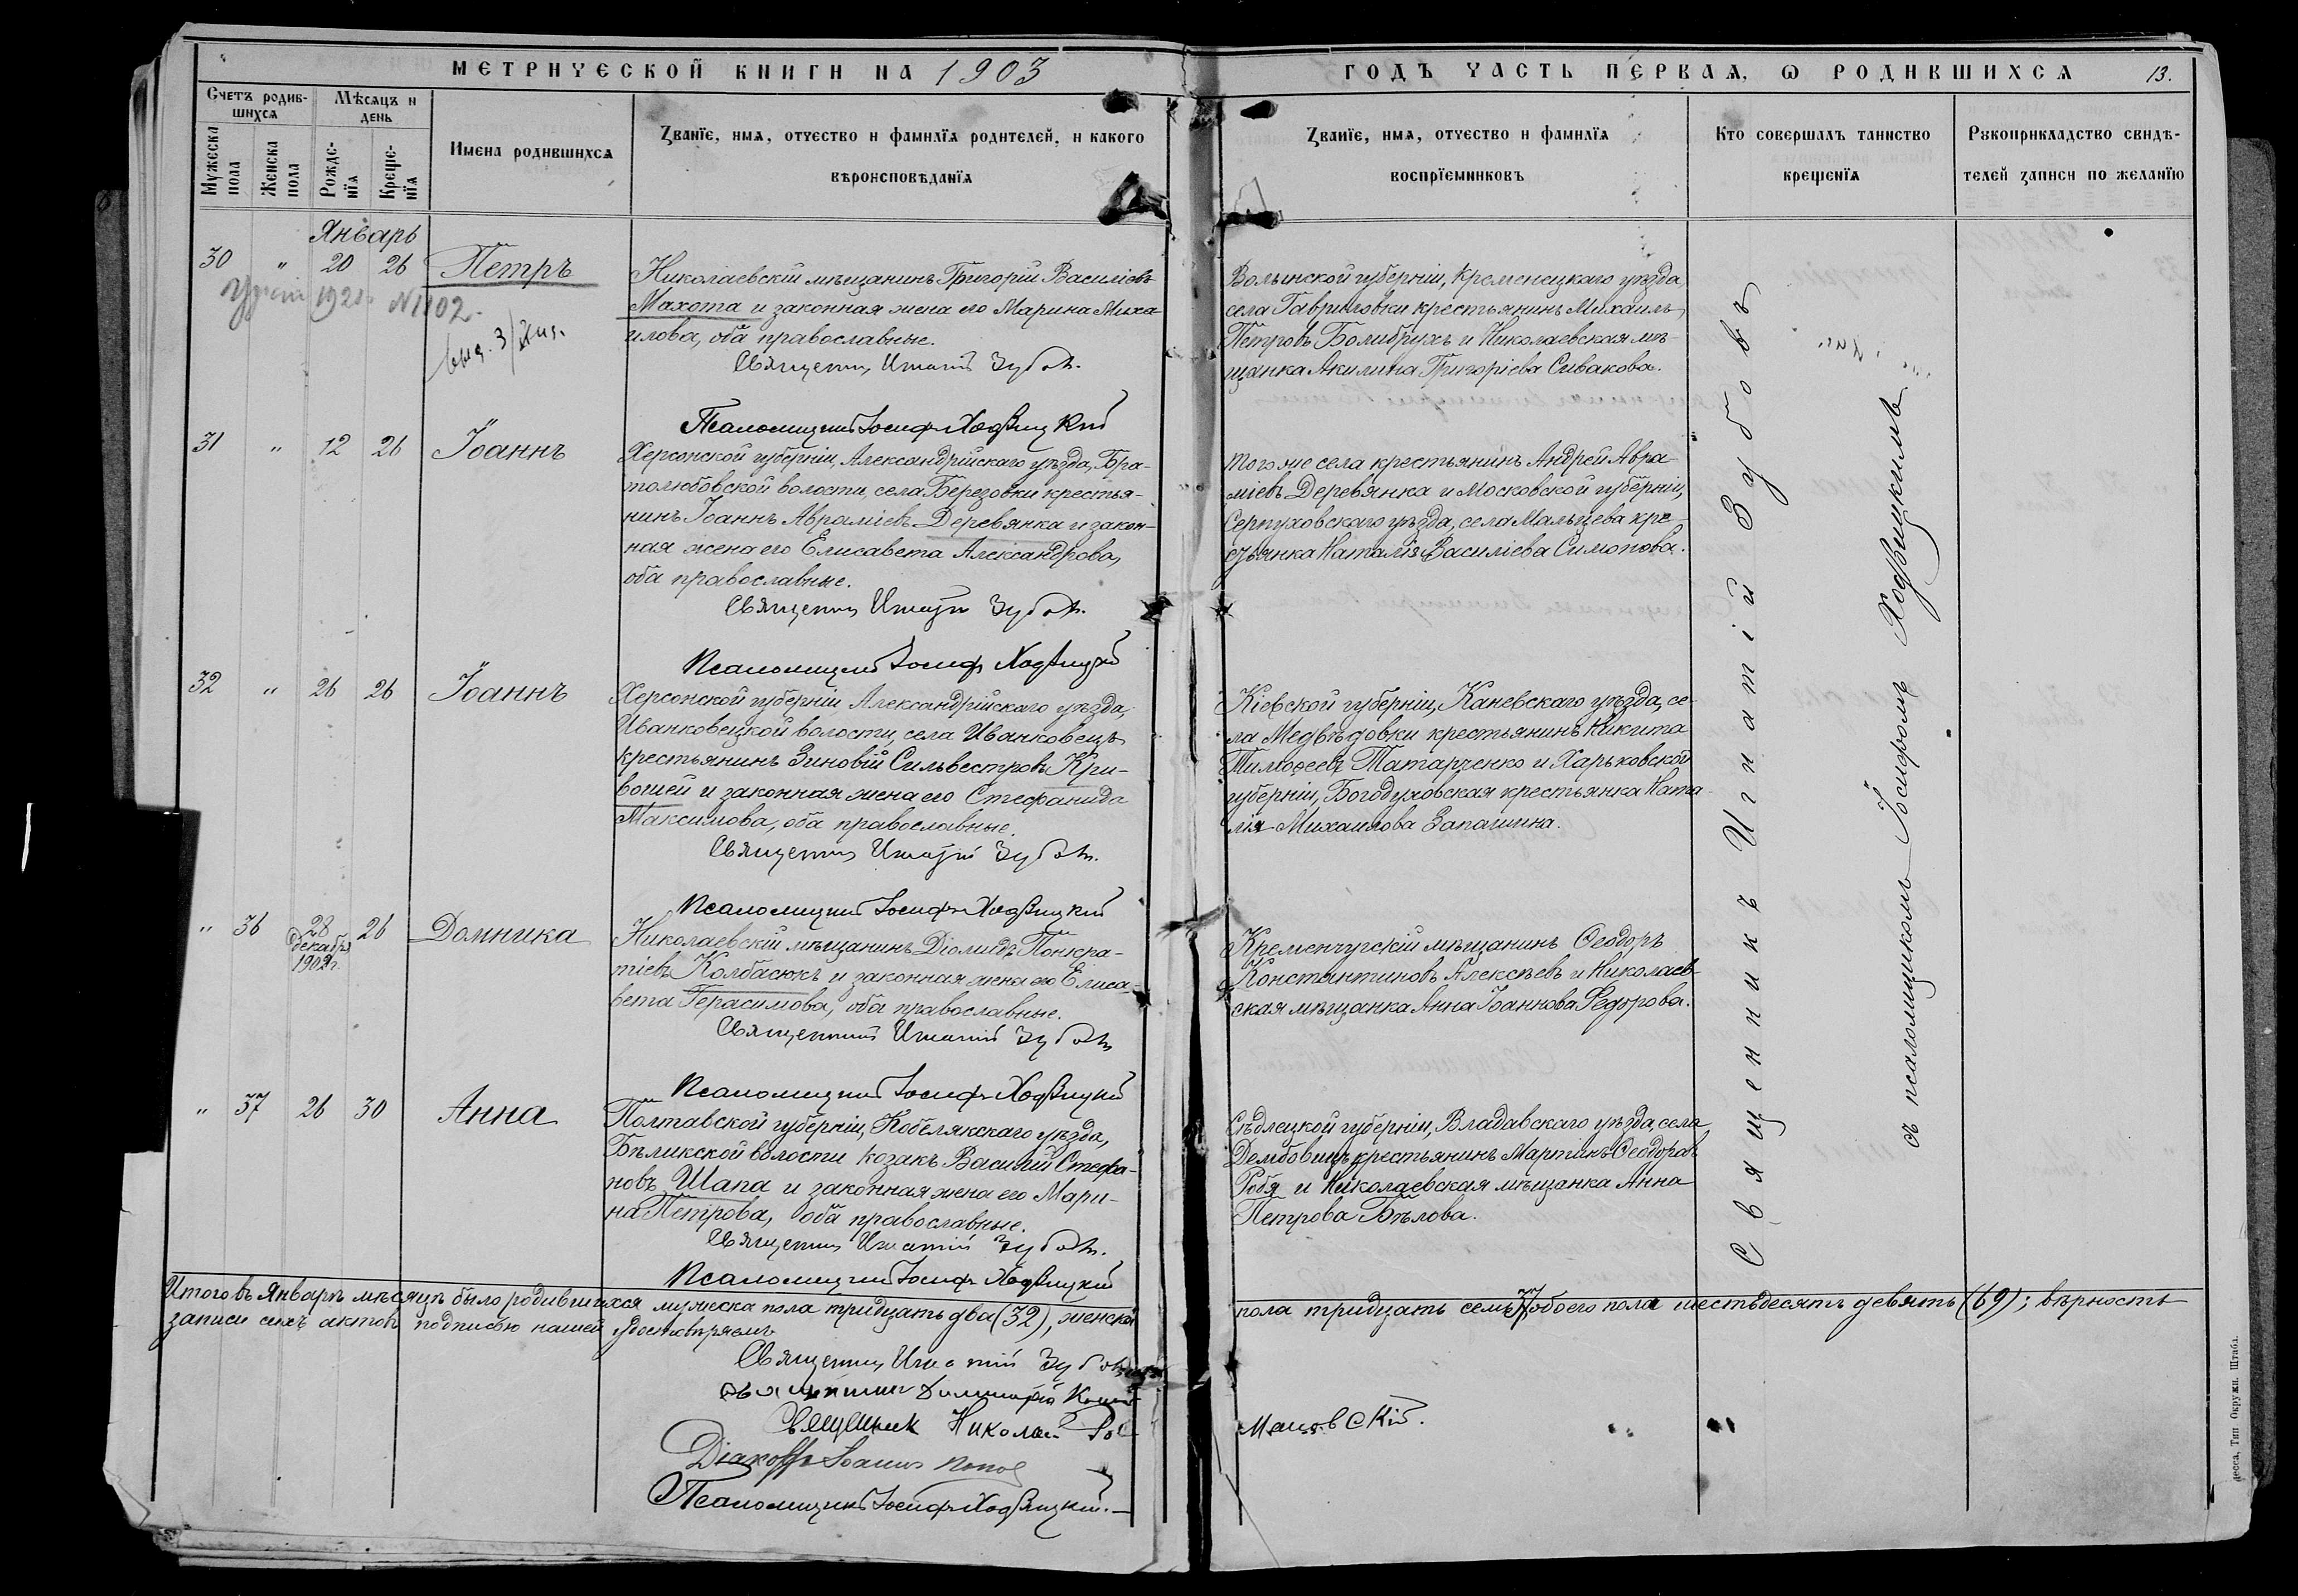 МЕТРИЧЕСКОЙ КНИГИ НА 1903
ГОДЪ ЧАСТЬ ПЕРВАЯ, Ѡ РОДИВШИХСЯ 13.
Счетъ родив-
шихся
Мѣсяцъ и
день
Мужеска
пола
Женска
пола
Рожде-
нїя
Креще-
нїя
Имена родившихся
Званїе, имя, отчество и фамилїя родителей, и какого
вѣроисповѣданїя
Званїе, имя, отчество и фамилїя
воспрїемниковъ
Кто совершалъ таинство
крещенїя
Рукоприкладство свидѣ-
телей записи по желанїю
Январь
30 " 20 26 Петръ
1921 N1102.
Николаевскій мѣщанинъ Григорій Василіевъ
Махота и законная жена его Марина Миха
илова, оба православные.
Священникъ Игнатій Зубовъ.
Псаломщикъ Іосифъ Ходзицкій
Волынской губерніи, Кременецкаго уѣзда,
села Гавриловки крестьянинъ Михаилъ
Петровъ Болибрухъ и Николаевская мѣ-
щанка Акилина Григоріева Сивакова.
31 " 12 26 Іоаннъ
Херсонской губерніи, Александрійскаго уѣзда, Бра-
толюбовской волости, села Березовки крестья-
нинъ Іоаннъ Авраміевъ Деревянка и закон-
ная жена его Елисавета Александрова,
оба православные.
Священникъ Игнатій Зубовъ.
Псаломщикъ Іосифъ Ходзицкій
того же села крестьянинъ Андрей Авра-
міевъ Деревянка и Московской губерніи,
Серпуховскаго уѣзда, села Мальцева кре-
стьянка Наталія Василіева Симонова.
32 " 26 26 Іоаннъ
Херсонской губерніи, Александрійскаго уѣзда,
Иванковецкой волости, села Иванковецъ
крестьянинъ Зиновій Сильвестровъ Кри-
вошей и законная жена его Стефанида
Максимова, оба православные.
Священникъ Игнатій Зубовъ.
Псаломщикъ Іосифъ Ходзицкій
Кіевской губерніи, Каневскаго уѣзда, се-
ла Медвѣдовки крестьянинъ Никита
Тимоѳеевъ Татарченко и Харьковской
губерніи, Богодуховская крестьянка Ната-
лія Михаилова Запашина.
" 36 28 26 Домника
декабря
1902 г.
Николаевскій мѣщанинъ Діомидъ Понкра-
тіевъ Колбасюкъ и законная жена его Елиса-
вета Герасимова, оба православные.
Священникъ Игнатій Зубовъ
Псаломщикъ Іосифъ Ходзицкій
Кременчугскій мѣщанинъ Ѳеодоръ
Константиновъ Алексѣевъ и Николаев-
ская мѣщанка Анна Іоаннова Федорова.
" 37 26 30 Анна
Полтавской губерніи, Кобелякскаго уѣзда,
Бѣликской волости козакъ Василій Стефа-
новъ Шапа и законная жена его Мари-
на Петрова, оба православные.
Священникъ Игнатій Зубовъ.
Псаломщикъ Іосифъ Ходзицкій
Сѣдлецкой губерніи, Владавскаго уѣзда, села
Дембовицъ крестьянинъ Мартинъ Ѳеодоровъ
Робя и Николаевская мѣщанка Анна
Петрова Бѣлова.
Священникъ Игнатій Зубовъ
съ псаломщикомъ Іосифомъ Ходзицкимъ
Итого въ Январѣ мѣсяцѣ было родившихся мужеска пола тридцать два (32), женска
пола тридцать семь 37, обоего пола шестьдесятъ девять (69); вѣрность
записи сихъ актовъ подписью нашей удостовѣряемъ
Священникъ Игнатій Зубовъ
Священникъ Николай
Діаконъ Іоаннъ Попов
Псаломщикъ Іосифъ Ходзицкій.
десса, Тип. Окружн. Штаба.